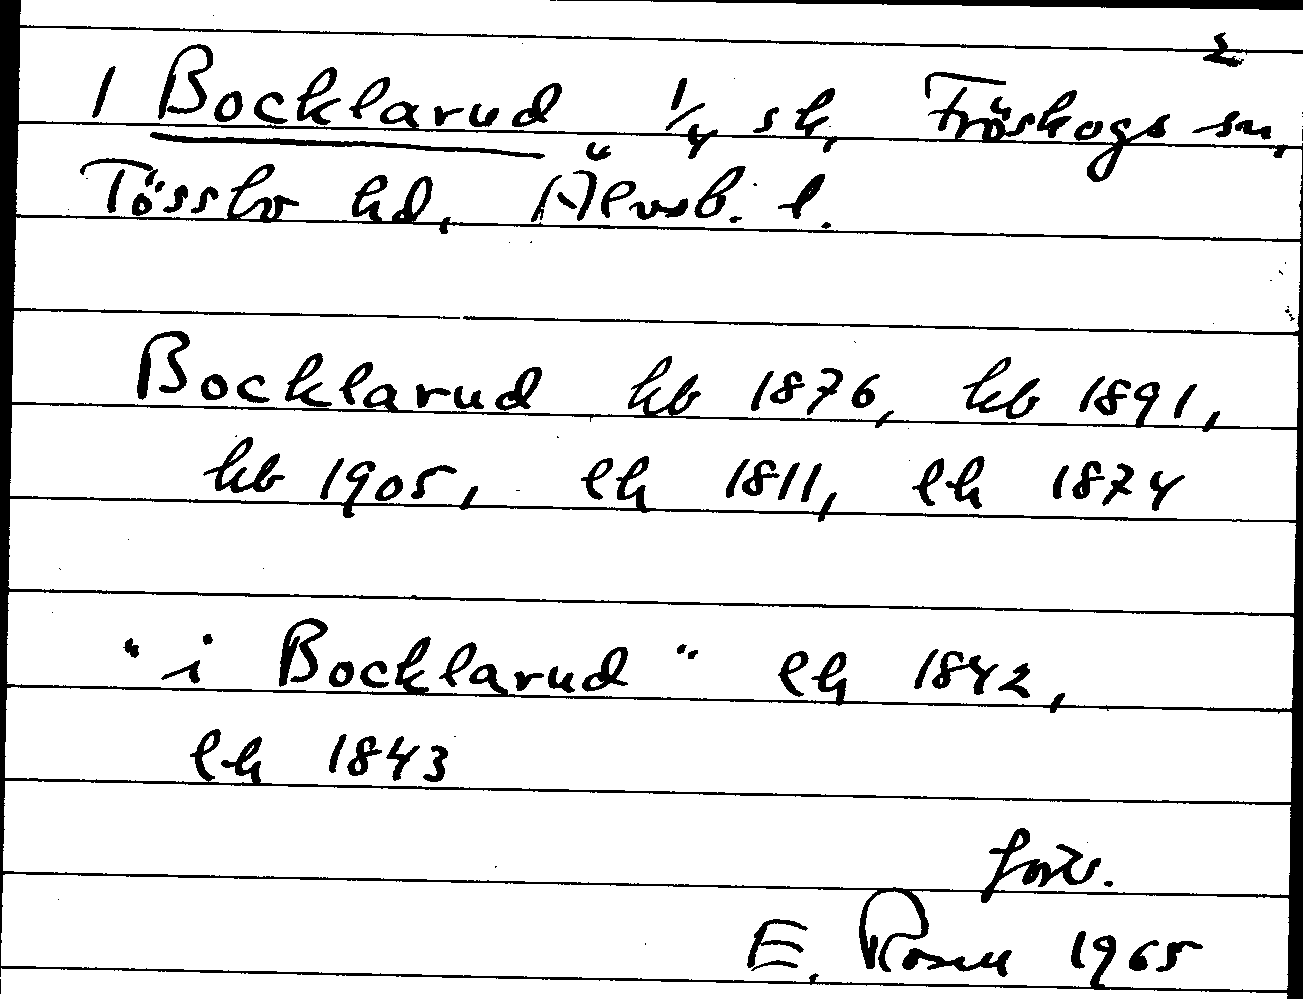 2
1 Bocklarud 1/4 sk, Fröskogs sn,
Tössbo hd, Älvsb. l.
Bocklarud hb 1876, hb 1891,
hb 1905, lh 1811, lh 1874
"i Bocklarud" lh 1842,
lh 1843
forts.
E. Rosell 1965